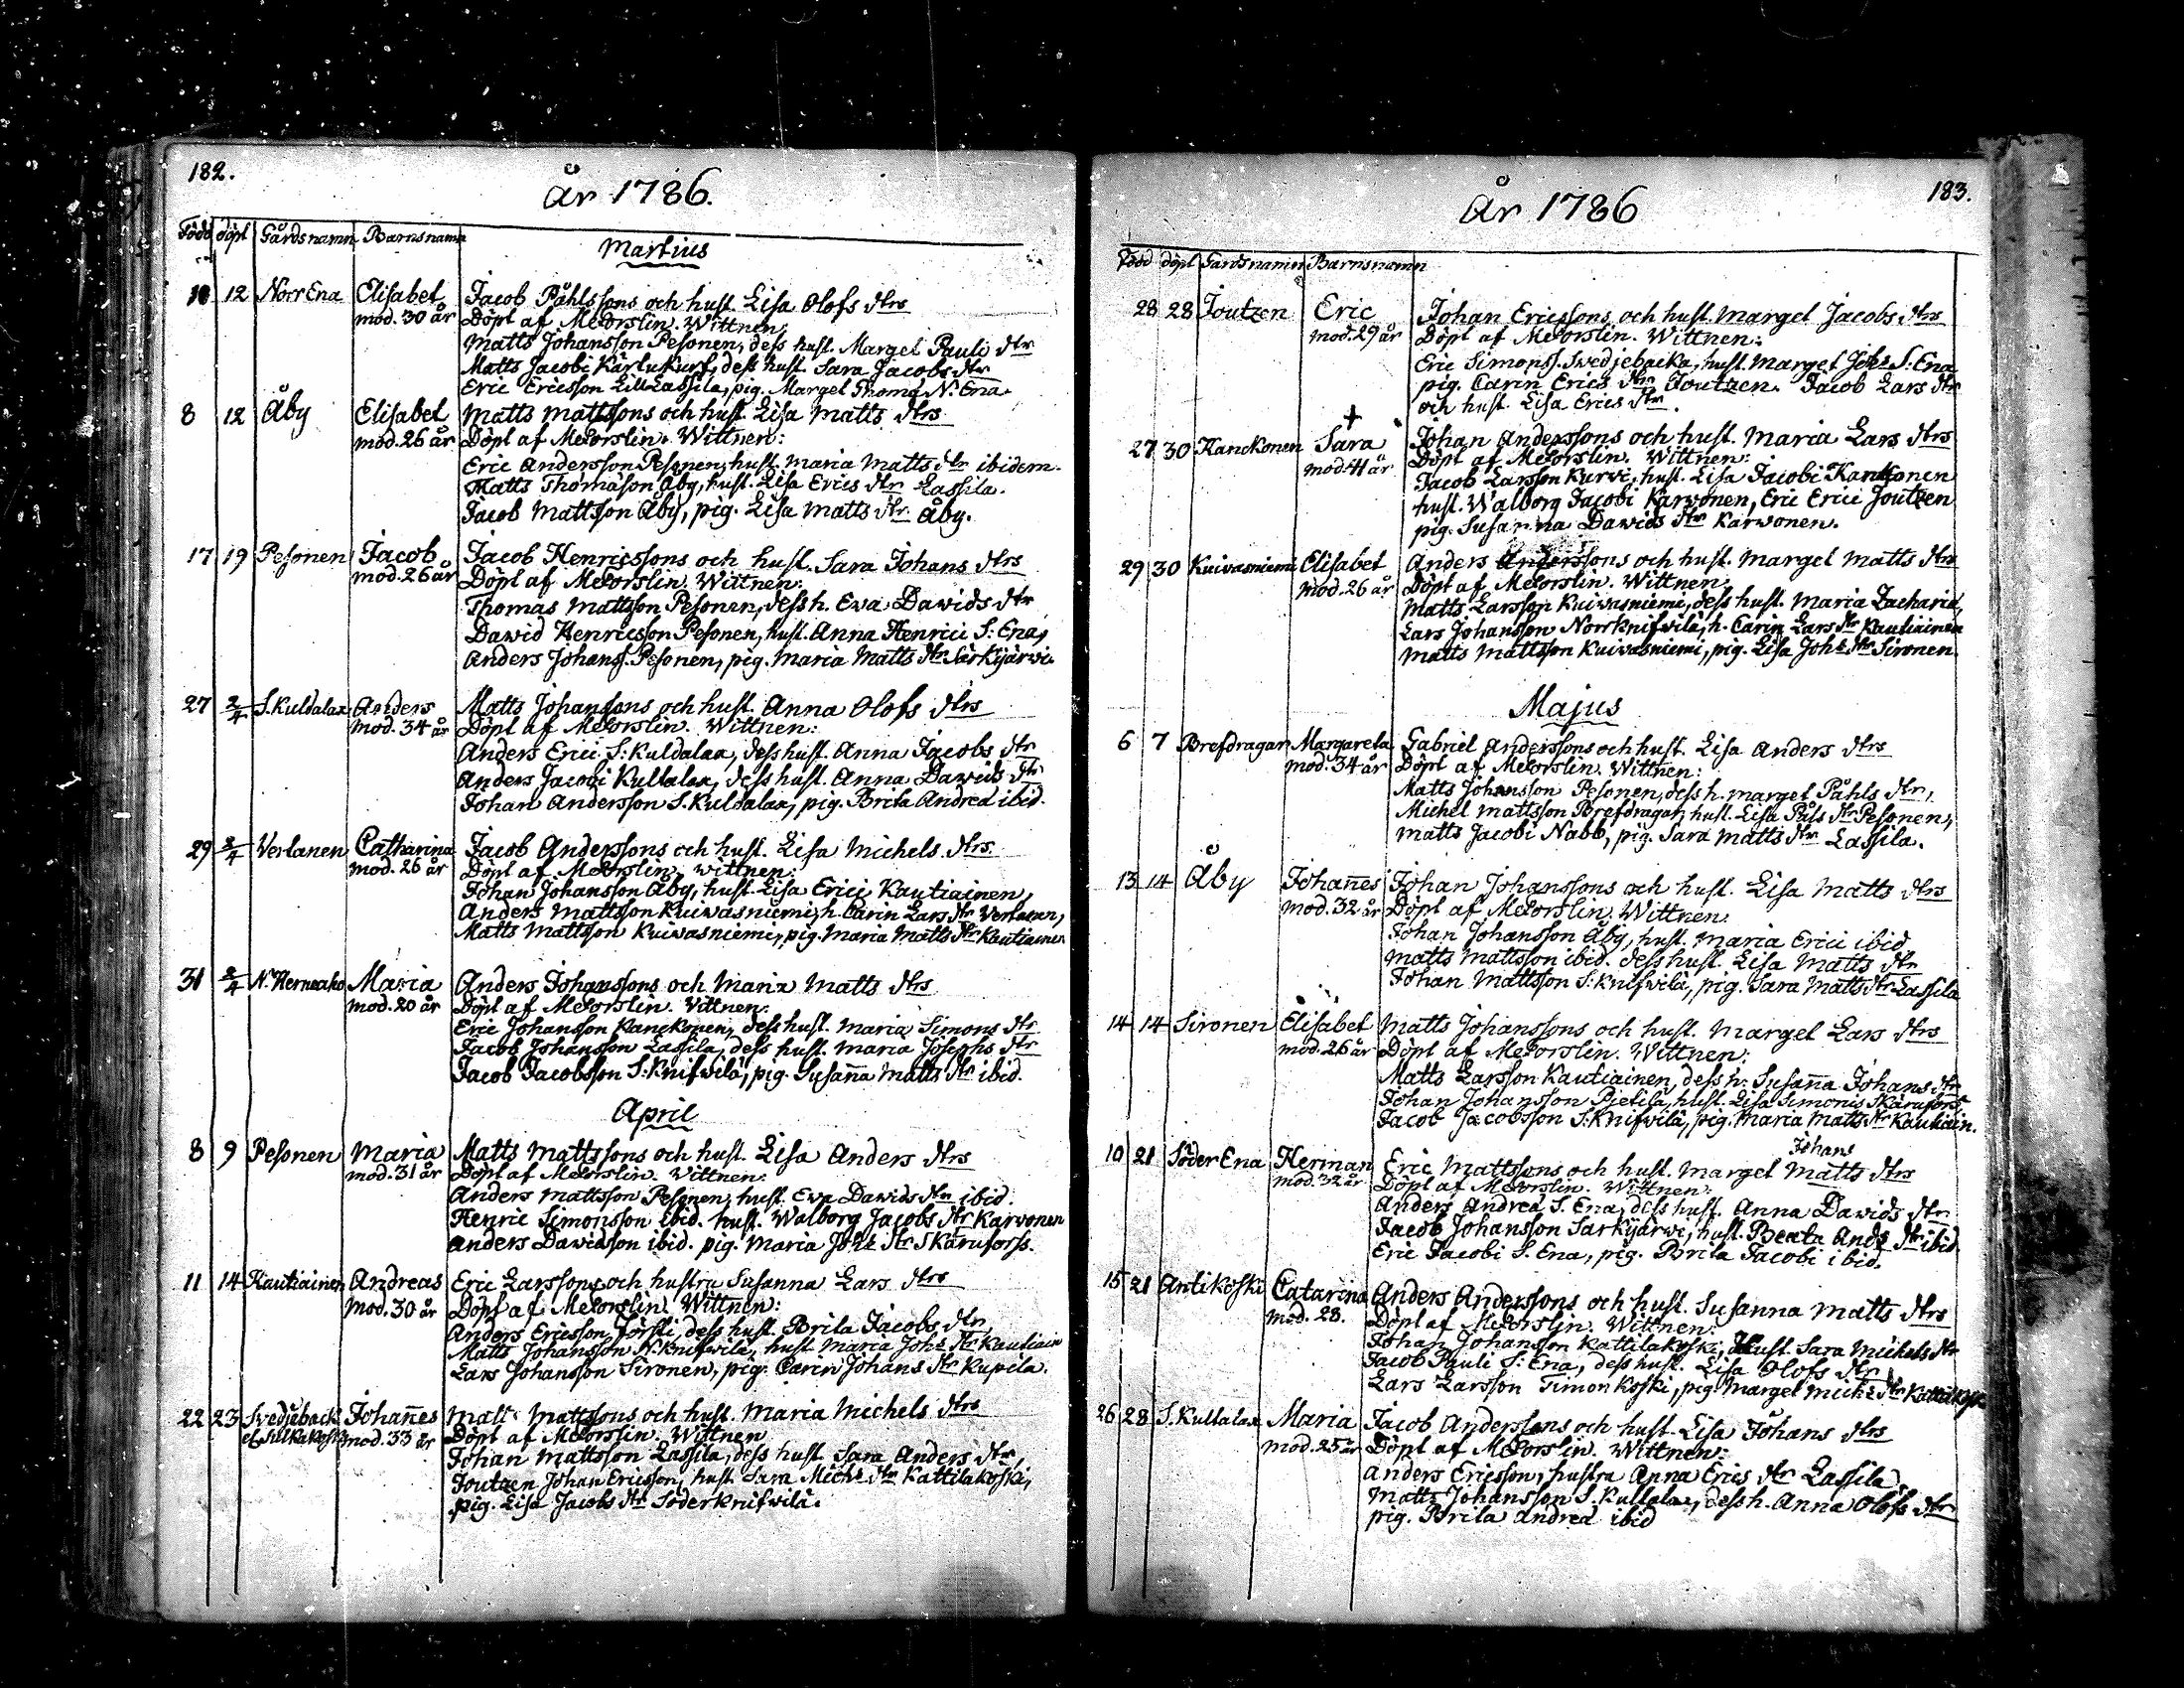 182.
År 1786.
Född döpt Gårdsnamn Barnsnamn
Martius
10 12 Norr Ena Elisabet Jacob Påhlssons och hust. Lisa Olofs dtrs
mod. 30 år Döpt af Meðorslin. Wittnen;
Matts Johansson Pesonen, dess hust. Marget Pauli dtr
Matts Jacobi Karlukurf, dess hust. Sara Jacobs dtr
Eric Ericsson Lill Lassila, pig. Marget Thomæ N. Ena.
8 12 Åby Elisabet Matts Mattssons och hust. Lisa Matts dtrs
mod. 26 år Döpt af Meðorslin. Wittnen:
Eric Andersson Pesonen, hust. Maria Matts dtr ibidem.
Matts Thomasson Åby, hust. Lisa Erics dtr Lassila.
Jacob Mattsson Åby, pig. Lisa Matts dtr Åby.
17 19 Pesonen Jacob Jacob Henricssons och hust. Sara Johans dtrs
mod. 26 år Döpt af Meðorslin. Wittnen:
Thomas Mattsson Pesonen, dess h. Eva Dawids dtr
Dawid Henricsson Pesonen, hust. Anna Henrici S: Ena,
Anders Johanss. Pesonen, pig. Maria Matts dtr Särkijärwi.
27 2/4 S. Kuldalax Anders Matts Johanssons och hust. Anna Olofs dtrs
mod. 34 år Döpt af Meðorslin. Wittnen:
Anders Erici S: Kuldalax, dess hust. Anna Jacobs dtr
Anders Jacobi Kultalax, dess hust. Anna Dawids dtr
Johan Andersson S. Kuldalax, pig. Brita Andreæ ibid.
29 2/4 Verlanen Catharina Jacob Anderssons och hust. Lisa Michels dtrs.
mod. 26 år Döpt af Meðorslin, wittnen:
Johan Johansson Åby, hust. Lisa Erici Kautiainen,
Anders Mattsson Kuiwasniemi, h. Carin Lars dtr Verlanen,
Matts Mattsson Kuiwasniemi, pig. Maria Matts dtr Kautiainen
31 2/4 N. Herneaho Maria Anders Johanssons och Maria Matts dtrs
mod. 20 år Döpt af Meðorslin. Vittnen:
Eric Johansson Kanckonen, dess hust. Maria Simons dtr
Jacob Johansson Lassila, dess hust. Maria Josephs dtr
Jacob Jacobsson S: Knifwilä, pig. Susaña Matts dtr ibid.
April
8 9 Pesonen Maria Matts Mattssons och hust. Lisa Anders dtrs
mod. 31 år Döpt af Meðorslin. Vittnen:
Anders Mattsson Pesonen, hust. Ewa Dawids dtr ibid.
Henric Simonsson ibid. hust. Walborg Jacobs dtr Karvonen
Anders Dawidson ibid. pig. Maria Johs dtr Skärufors.
11 14 Kautiainen Andreas Eric Larssons och hustru Susanna Lars dtrs
mod. 30 år Döpt af Meðorslin. Wittnen:
Anders Ericsson Jörsti, dess hust. Brita Jacobs dtr
Matts Johansson N. Knifwilä, hust. Maria Johs dtr Kautiain
Lars Johansson Sironen, pig. Carin Johans dtr Kupila.
22 23 Svedjeback Johañes Matts Mattssons och hust. Maria Michels dtrs
mod. 33 år Döpt af Meðorslin. Wittnen
Johan Mattsson Lassila, dess hust. Sara Anders dtr,
Joutzen Johan Ericsson, hust. Sara Michs dtr Kattilakoski,
pig. Lisa Jacobs dtr Söderknifwilä.
183.
År 1786
Född döpt Gårdsnamn Barnsnamn
28 28 Joutzen Eric Johan Ericssons och hust. Marget Jacobs dtrs
mod. 29 år Döpt af Meðorslin. Wittnen:
Eric Simonss. Svedjebacka, hust. Marget Johs S. Ena
pig. Carin Erics dtr Joutzen. Jacob Lars dtr
och hust. Lisa Erics dtr.
27 30 Kanckonen Sara Johan Anderssons och hust. Maria Lars dtrs
mod. 41 år Döpt af Meðorslin. Wittnen:
Jacob Larsson Kurvi, hust. Lisa Jacobi Kanckonen
hust. Walborg Jacobi Karwonen, Eric Erici Joutzen
pig. Susanna Dawids dtr Karwonen.
29 30 Kuiwasniemi Elisabet Anders Anderssons och hust. Marget Matts dtrs
mod. 26 år Döpt af Meðorslin. Wittnen
Matts Larsson Kuiwasniemi, dess hust. Maria Zachariæ,
Lars Johansson Norrknifwilä, h. Carin Lars dtr Kautiainen
Matts Mattsson Kuiwasniemi, pig. Lisa Johs dtr Sironen.
Majus
6 7 Brefdragar Margareta Gabriel Anderssons och hust. Lisa Anders dtrs
mod. 34 år Döpt af Meðorslin. Wittnen:
Matts Johansson Pesonen, dess h. Marget Påhls dtr,
Michel Mattsson Brefdragar, hust. Lisa Påls dtr Pesonen,
Matts Jacobi Nabb, pig. Sara Matts dtr Lassila.
13 14 Åby Johañes Johan Johanssons och hust. Lisa Matts dtrs
mod. 32 år Döpt af Meðorslin. Wittnen:
Johan Johansson Åby, hust. Maria Erici ibid
Matts Mattsson ibid. dess hust. Lisa Matts dtr
Johan Mattsson S: Knifwilä, pig. Sara Matts dtr Lassila
14 14 Sironen Elisabet Matts Johanssons och hust. Marget Lars dtrs
mod. 26 år Döpt af Meðorslin. Wittnen:
Matts Larsson Kautiainen, dess h: Susaña Johans dtr
Johan Johansson Pietila, hust. Lisa Simonis Skärufors,
Jacob Jacobsson S: Knifwilä, pig. Maria Matts dtr Kautiain.
Johans
10 21 Söder Ena Herman Eric Mattssons och hust. Marget Matts dtrs
mod. 32 år Döpt af Meðorslin. Wittnen:
Anders Andreæ S. Ena, dess hust. Anna Dawids dtr
Jacob Johansson Särkijärwi, hust. Beata Ands dtr ibid.
Eric Jacobi S. Ena, pig. Brita Jacobi ibid.
15 21 Antikoski Catarina Anders Anderssons och hust. Susanna Matts dtrs
mod. 28. Döpt af Meðorslin. Wittnen:
Johan Johansson Kattilakoski, hust. Sara Michels dtr
Jacob Pauli S: Ena, dess hust. Lisa Olofs dtr
Lars Larsson Timonkoski, pig. Marget Michs dtr Kattilakosk
26 28 S. Kultalax Maria Jacob Anderssons och hust. Lisa Johans dtrs
mod. 25 år Döpt af Meðorslin. Wittnen:
Anders Ericsson, hustru Anna Erics dtr Lassila,
Matts Johansson S. Kultalax, dess h. Anna Olofs dtr
pig. Brita Andreæ ibid